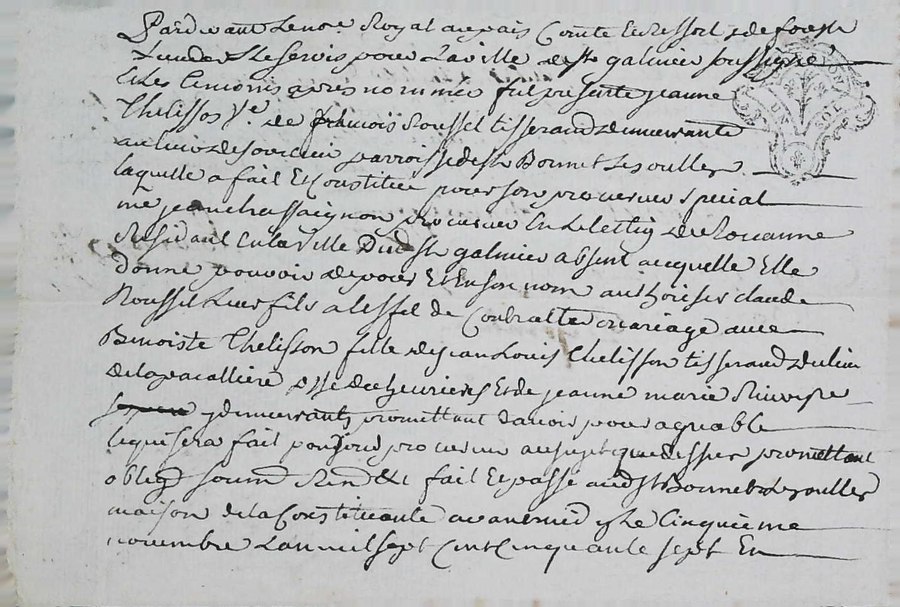 Pardevant Le nore Royal au pais Comté Et Ressort de forest
reservé pour La ville de St galmier soussigné
Et Les temoins apres nommés fut presente jeanne
Thelisson Ve. de françois Roussel tisserand demeurante
au lieu de parroisse de St Bonnet Les oulles
laquelle a fait Et Constitué pour son procureur special
me jean chassaignon procureur En Lelection de Roanne
Residant En la ville Dud St galmier absent auquelle Elle
donne pouvoir de pour Et En son nom authoriser claude
Roussel Leur fils a leffet de Contracter mariage avec
Benoiste Thelisson fille de jean Louis Thelisson tisserand du lieu
de la psse de cheurieres Et de jeanne marie
y demeurants promettant Lavoir pour agreable
le qui sera fait par sond procureur au sujet que dessus promettant
oblig soum Ren &c fait Et passé aud St Bonnet Les oulles
maison de la Constituante avant midy Le Cinquieme
novembre Lan mil sept Cent Cinquante sept En